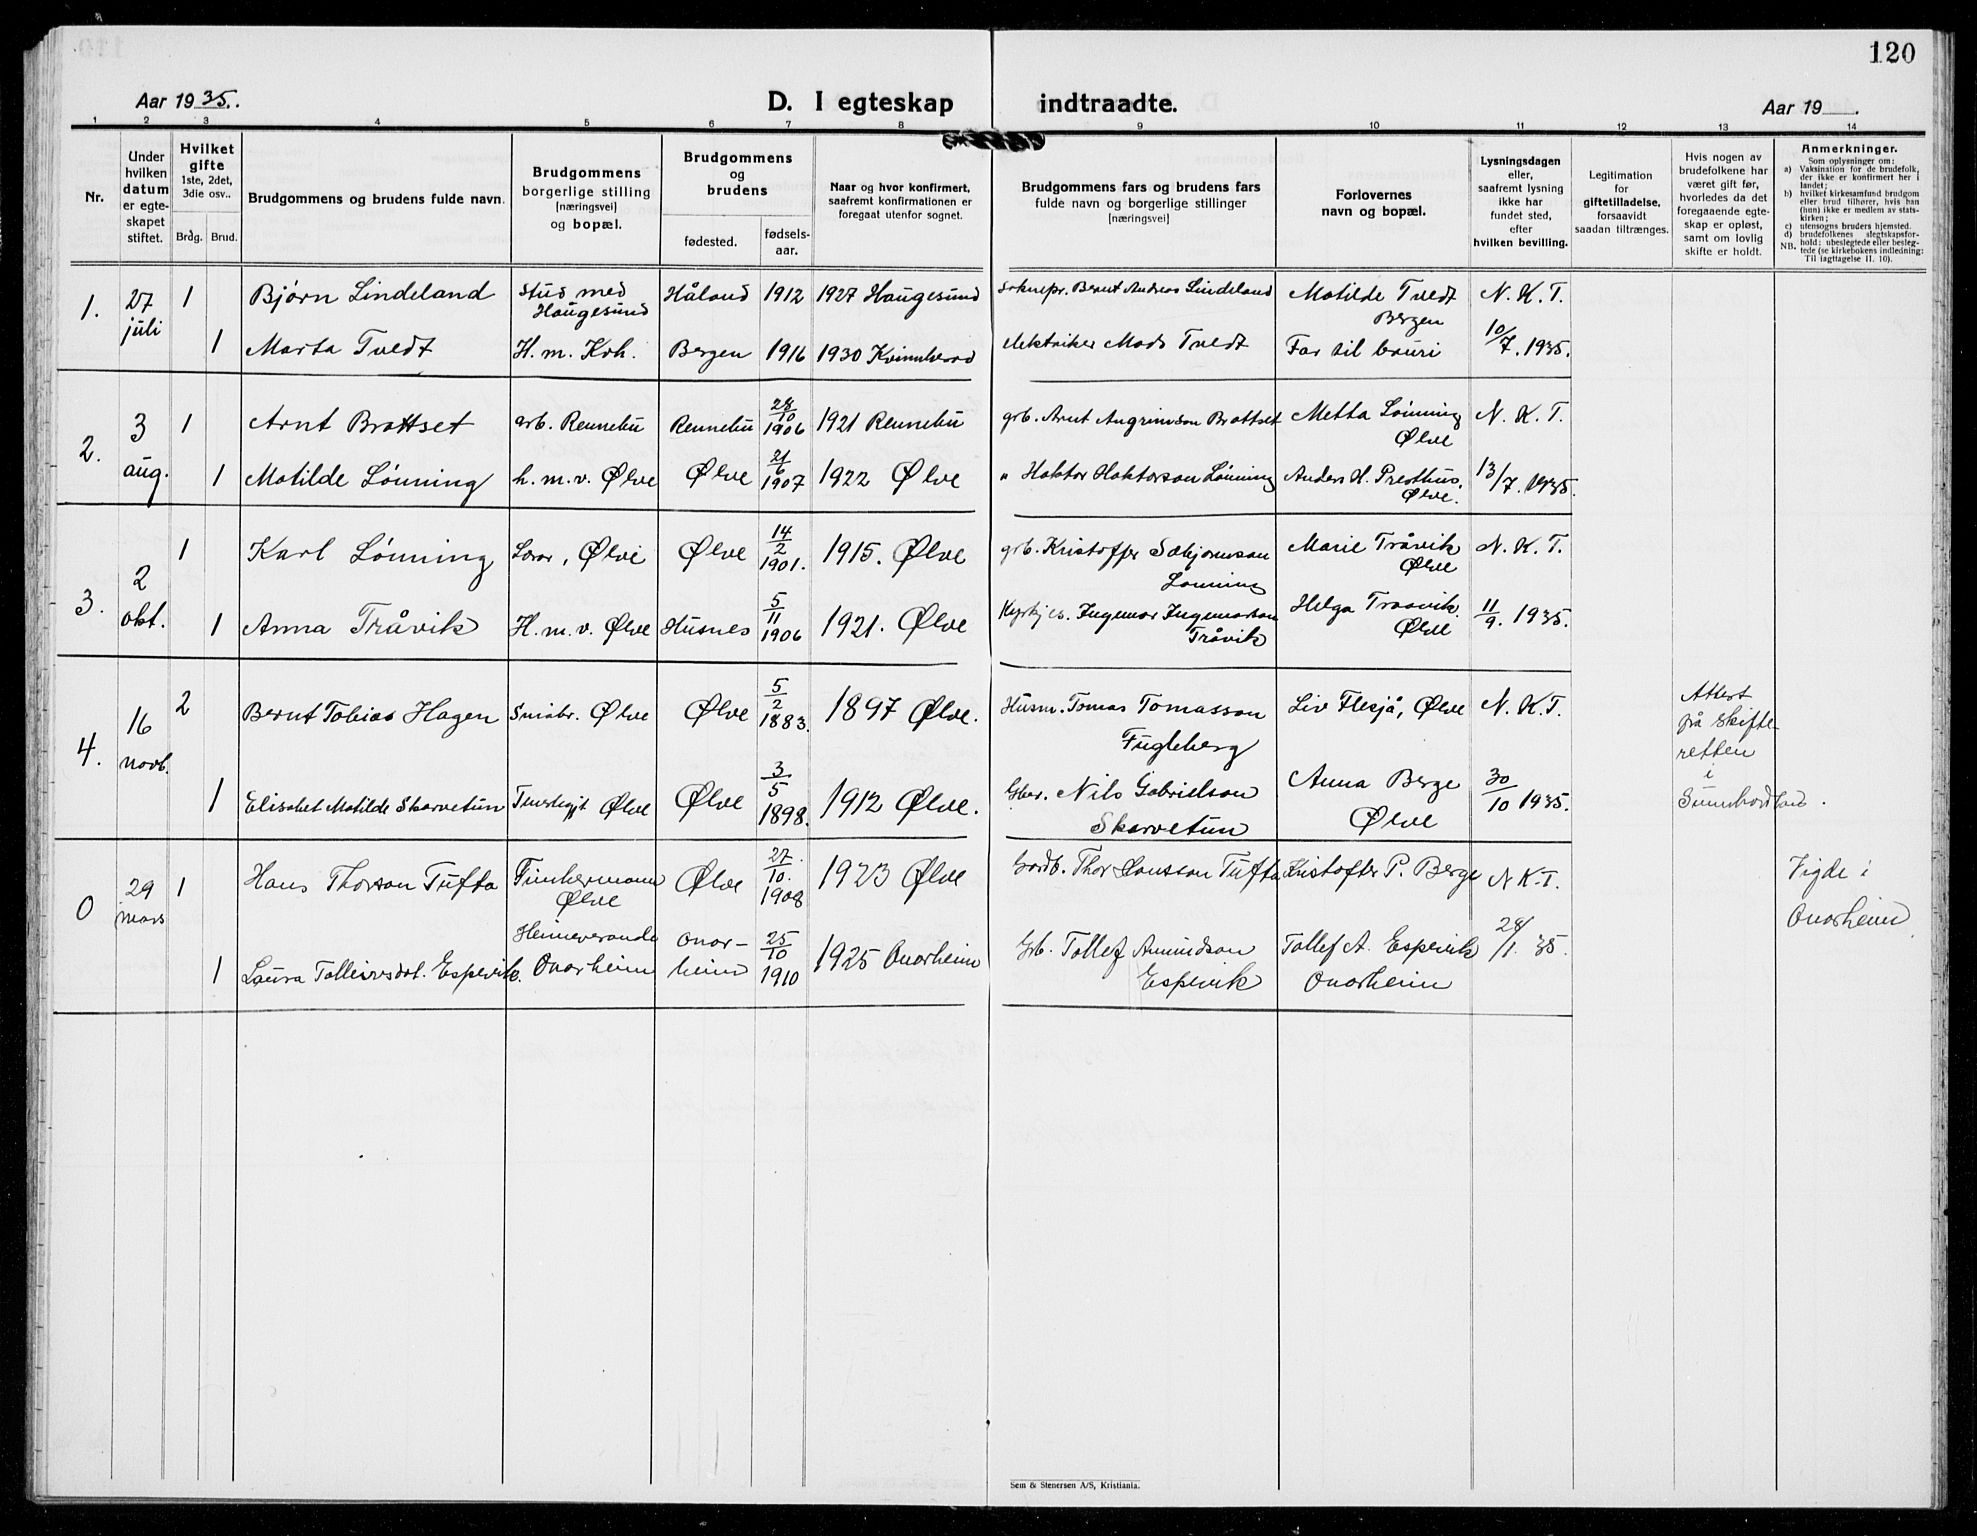 120
Aar 1935.
D. I egteskap indtraadte.
Aar 19
1 2 3 4 5 6 7 8 9 10 11 12 13 14
Nr.
Under hvilken datum er egteskapet stiftet.
Hvilket gifte 1ste, 2det, 3die osv..
Brdg. Brud.
Brudgommens og brudens fulde navn.
Brudgommens borgerlige stilling (næringsvei) og bopæl.
Brudgommens og brudens
fødested. fødselsaar.
Naar og hvor konfirmert, saafremt konfirmationen er foregaat utenfor sognet.
Brudgommens fars og brudens fars fulde navn og borgerlige stillinger (næringsvei)
Forlovernes navn og bopæl.
Lysningsdagen eller, saafremt lysning ikke har fundet sted, efter hvilken bevilling.
Legitimation for giftetilladelse, forsaavidt saadan tiltrænges.
Hvis nogen av brudefolkene har været gift før, hvorledes da det foregaaende egteskap er opløst, samt om lovlig skifte er holdt.
Anmerkninger.
Som oplysninger om:
a) Vaksination for de brudefolk, der ikke er konfirmert her i landet;
b) hvilket kirkesamfund brudgom eller brud tilhører, hvis han (hun) ikke er medlem av statskirken;
c) utensogns bruders hjemsted.
d) brudefolkenes slegtskapsforhold: ubeslegtede eller beslegtede (se kirkebokens indledning:
NB. Til iagttagelse II. 10).
1. 27 juli 1 Bjørn Lindeland stud med Haugesund Håland 1912 1927 Haugesund soknepr. Bernt Andreas Lindeland Matilde Tvedt Bergen N. K. T.
1 Marta Tvedt H. m. Kvh. Bergen 1916 1930 Kvinnherad elektriker Mads Tvedt Far til bruri 10/7. 1935.
2. 3 aug. 1 Arnt Brattset arb. Rennebu Rennebu 28/10 1906 1921 Rennebu grb. Arnt Angrimson Brattset Metta Lønning Ølve N. K. T.
1 Matilde Lønning h. m. v. Ølve Ølve 21/6 1907 1922 Ølve " Haktor Haktorson Lønning Anders H. Presthus, Ølve. 13/7. 1935.
3. 2 okt. 1 Karl Lønning Lærar, Ølve Ølve 14/2 1901. 1915. Ølve grb. Kristoffer Sæbjørnson Lønning Marie Tråvik Ølve N. K. T.
1 Anna Tråvik H. m. v. Ølve Husnes 5/11 1906 1921. Ølve Kyrkjes. Ingemar Ingemarson Tråvik Helga Traavik. Ølve 11/9. 1935.
4. 16 novb. 2 Bernt Tobias Hagen Småbr. Ølve Ølve 5/2 1883. 1897 Ølve. Husm. Tomas Tomasson Fugleberg Liv Flesjå, Ølve N. K. T. Attest frå skifteretten i Sunnhordlan.
1 Elisabet Matilde Skarvetun Ølve Ølve 3/5 1898. 1912 Ølve. Gbr. Nils Gabrielson Skarvetun Anna Berge Ølve 30/10 1935.
0 29 mars 1 Hans Thorson Tufta Timbermann Ølve Ølve 27/10. 1908 1923 Ølve Gardb. Thor Hansson Tufta Kristoffer P. Berge N K. T. Vigde i Onarheim
1 Laura Tolleivsdot. Espevik. Heimeverande Onarheim Onarheim 25/10 1910 1925 Onarheim Grb. Tollef Amundson Espevik Tollef A. Espevik Onarheim 28/1. 35.
Sem & Stenersen A/S, Kristiania.